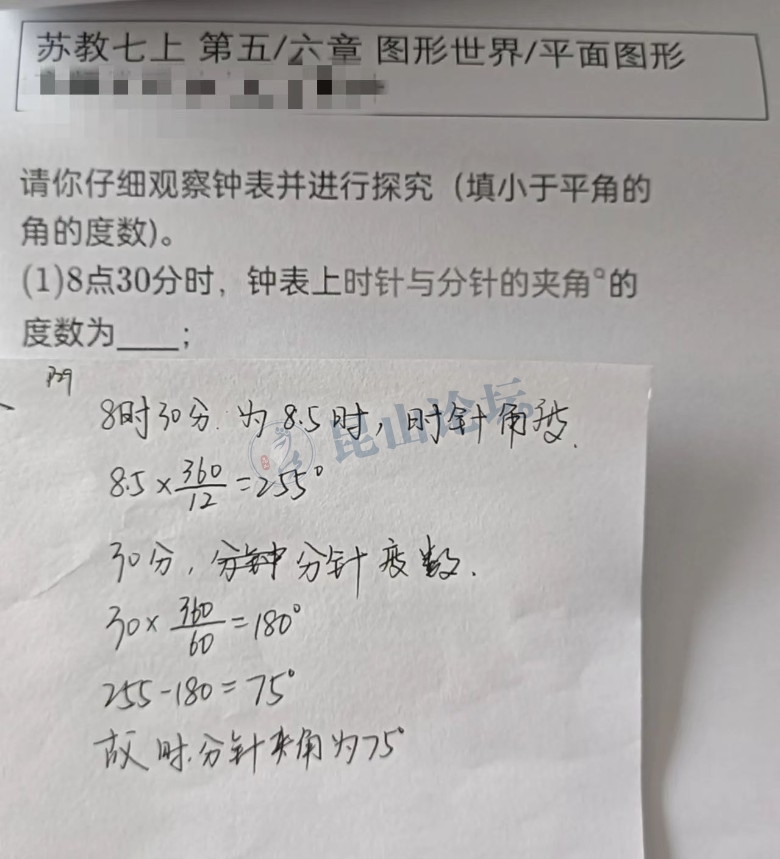 苏教七上 第五/六章 图形世界/平面图形
请你仔细观察钟表并进行探究（填小于平角的
角的度数)。
(1)8点30分时，钟表上时针与分针的夹角°的
度数为____；
P29
8时30分.为8.5时，时针角度.
8.5×360/12=255°
30分，分钟分针度数.
30×360/60=180°
255-180=75°
故时.分针夹角为75°
昆山论坛